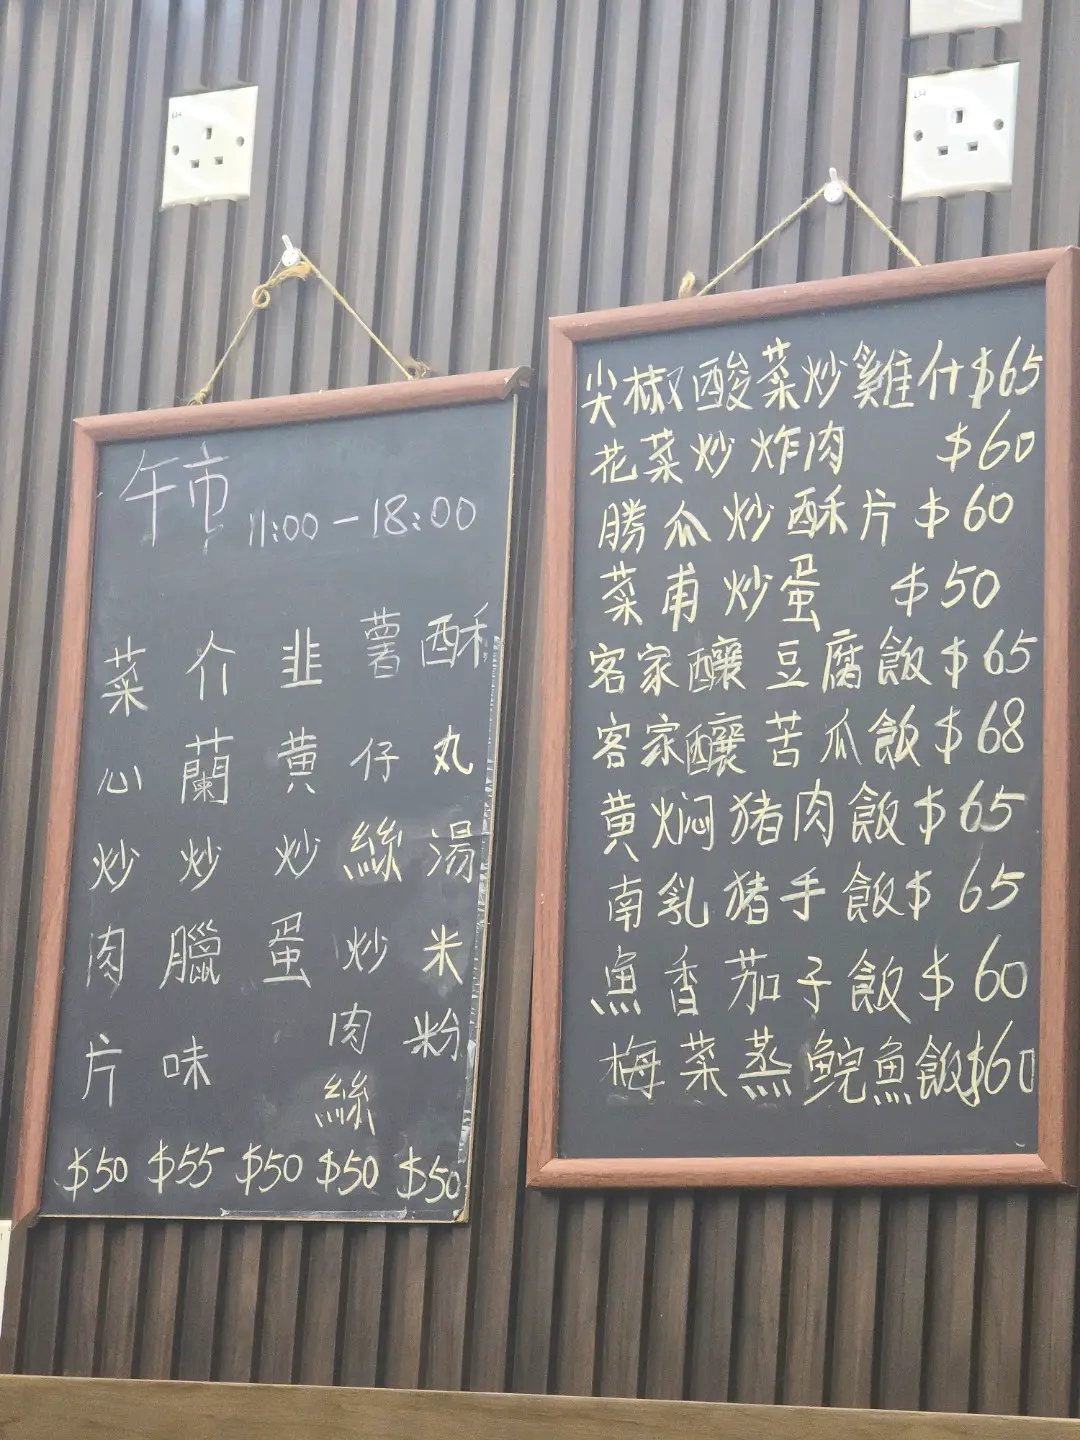 午市 11:00-18:00
酥丸湯米粉 $50
薯仔絲炒肉絲 $50
韭黄炒蛋 $50
介蘭炒臘味 $55
菜心炒肉片 $50
尖椒酸菜炒雞什$65
花菜炒炸肉 $60
勝瓜炒酥片 $60
菜甫炒蛋 $50
客家釀豆腐飯 $65
客家釀苦瓜飯 $68
黄焖猪肉飯 $65
南乳猪手飯 $65
魚香茄子飯 $60
梅菜蒸鲩魚飯 $60